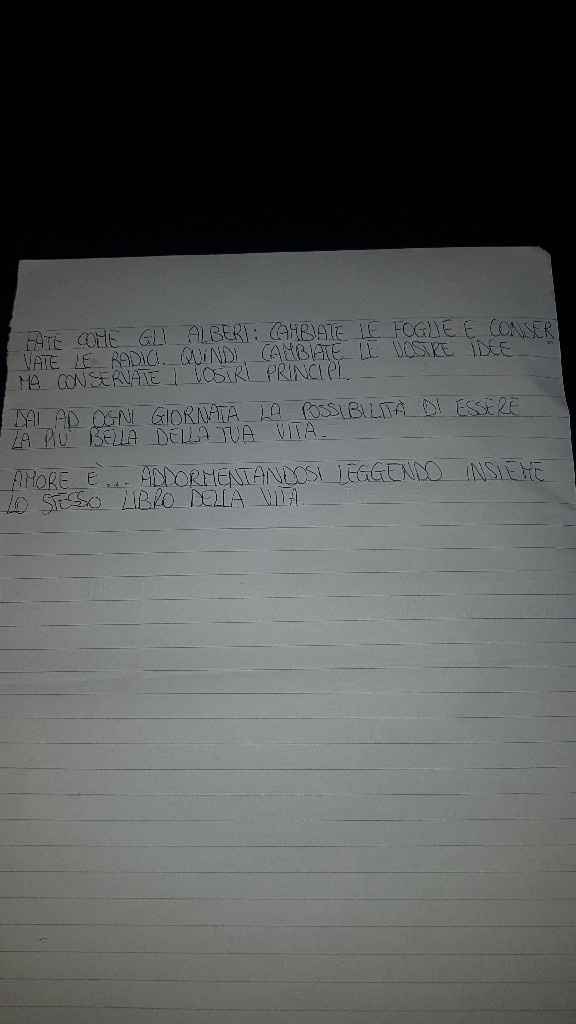 FATE COME GLI ALBERI: CAMBIATE LE FOGLIE E CONSER
VATE LE RADICI. QUINDI CAMBIATE LE VOSTRE IDEE
MA CONSERVATE I VOSTRI PRINCIPI.
DAI AD OGNI GIORNATA LA POSSIBILITÀ DI ESSERE
LA PIÙ BELLA DELLA TUA VITA.
AMORE È... ADDORMENTANDOSI LEGGENDO INSIEME
LO STESSO LIBRO DELLA VITA